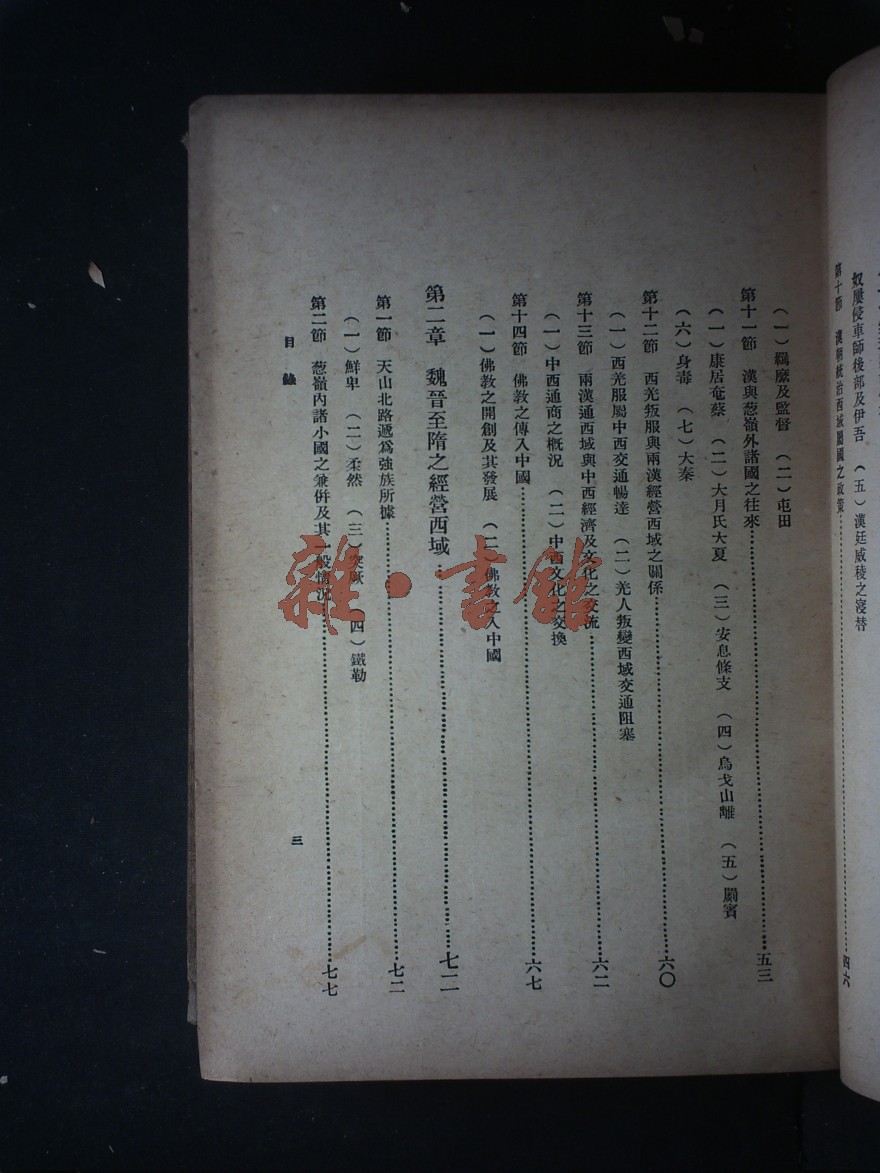 奴屢侵車師後部及伊吾 （五）漢廷威稜之寖替
第十節 漢朝統治西域屬國之政策……四六
（一）羈縻及監督 （二）屯田
第十一節 漢與葱嶺外諸國之往來……五三
（一）康居奄蔡 （二）大月氏大夏 （三）安息條支 （四）烏戈山離 （五）罽賓
（六）身毒 （七）大秦
第十二節 西羌叛服與兩漢經營西域之關係……六〇
（一）西羌服屬中西交通暢達 （二）羌人叛變西域交通阻塞
第十三節 兩漢通西域與中西經濟及文化之交流……六二
（一）中西通商之概況 （二）中西文化之交換
第十四節 佛教之傳入中國……六七
（一）佛教之開創及其發展 （二）佛教之入中國
第二章 魏晉至隋之經營西域……七二
第一節 天山北路遞爲強族所據……七二
（一）鮮卑 （二）柔然 （三）突厥 （四）鐵勒
第二節 葱嶺內諸小國之兼併及其一般情況……七七
目錄
三
雜·書館